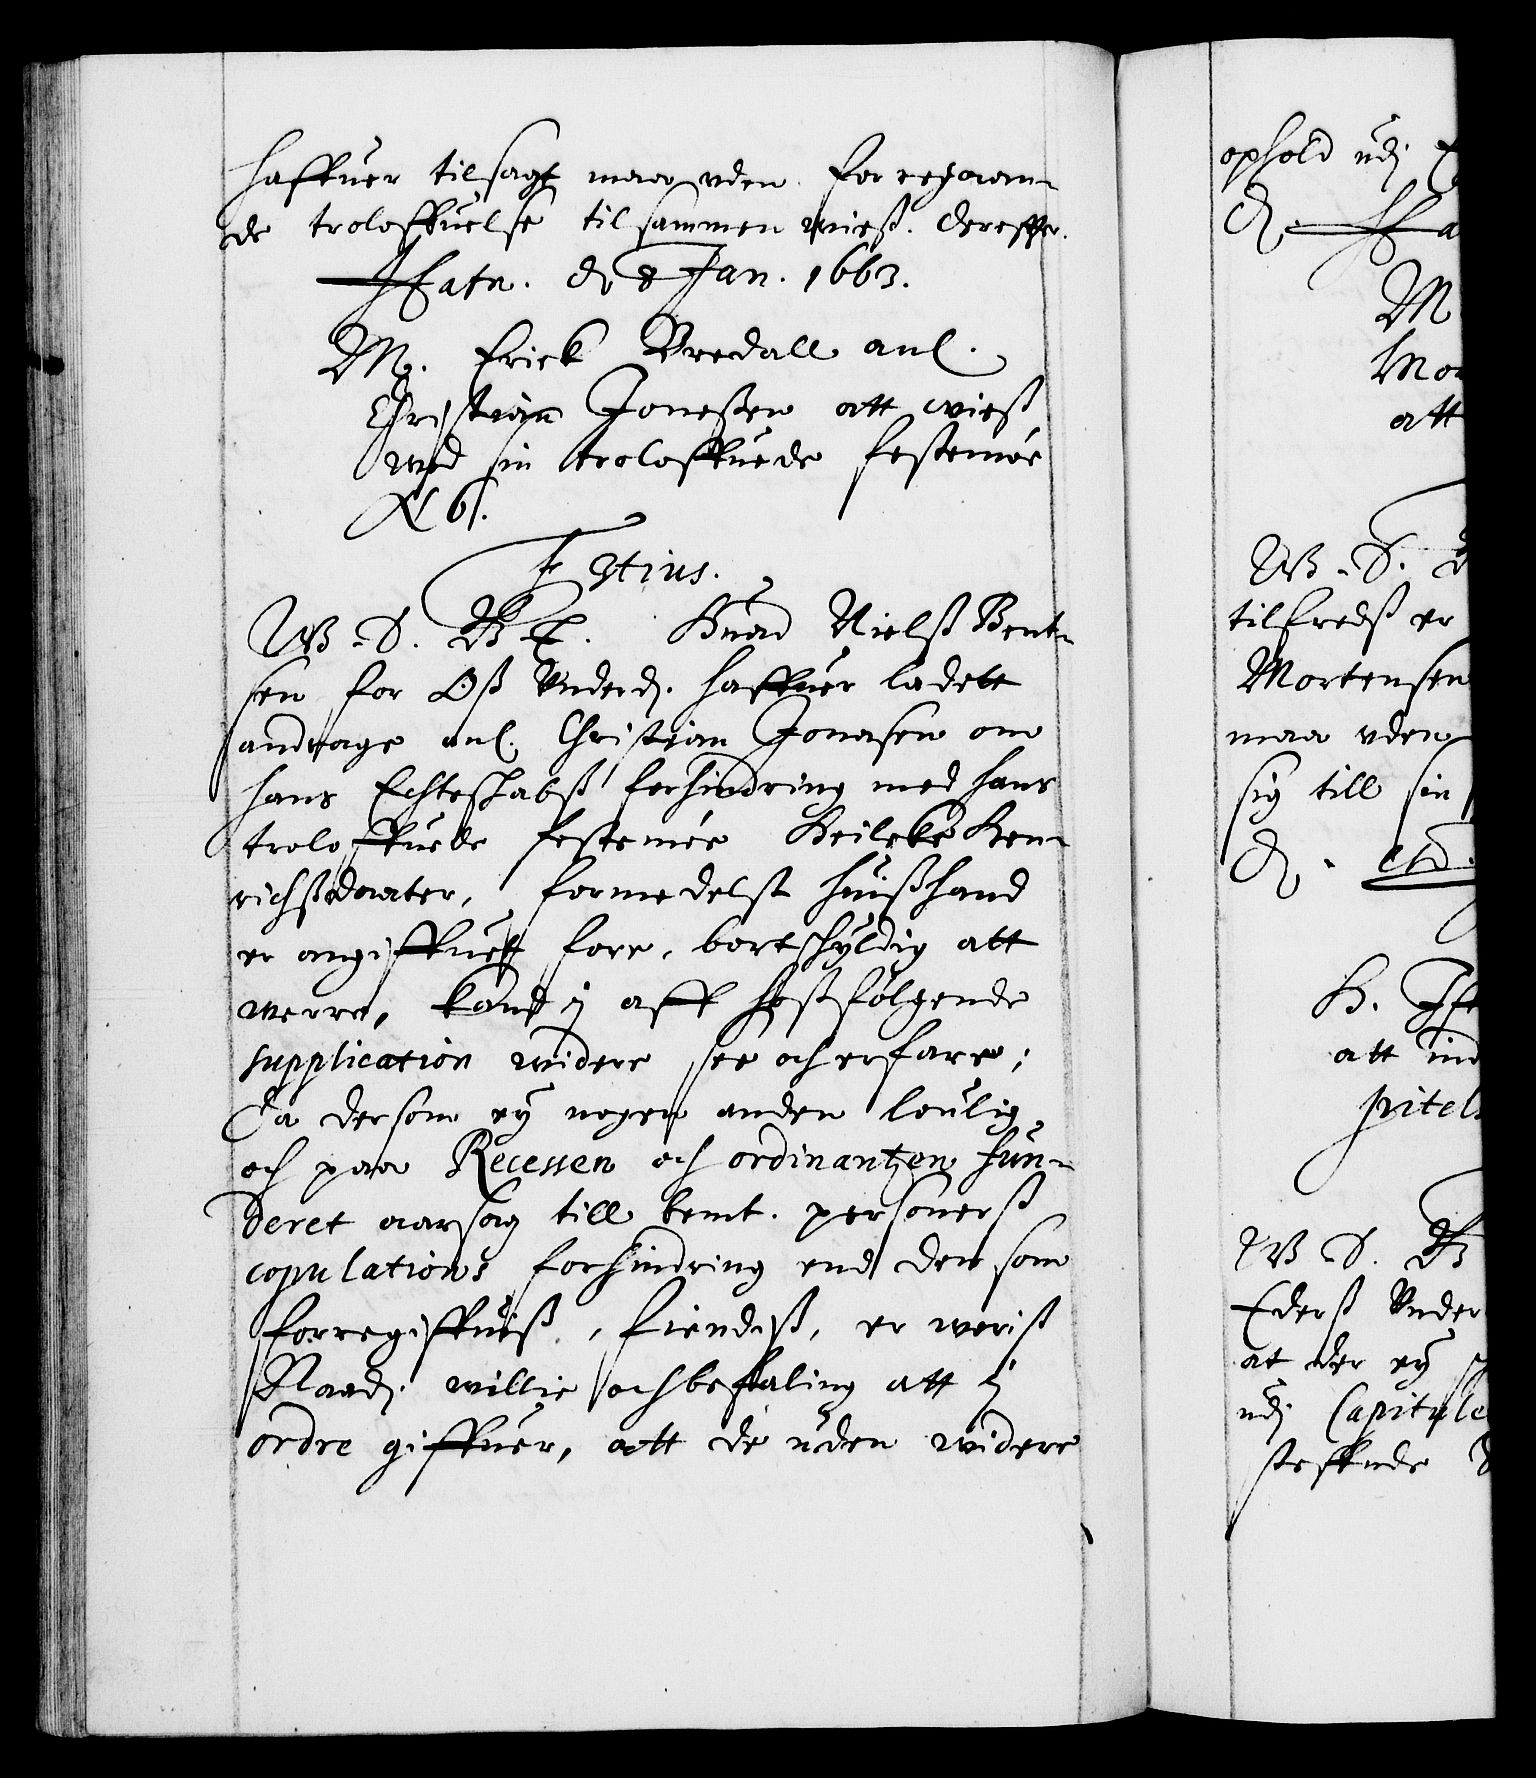 haffuer tilsagt maa uden foregaaen-
de troloffuelse tilsammen wies. dereffter.
Hafn. d 8 Jan. 1663.
M. Erick Bredall anl.
Christian Jonesen att wies
med sin troloffuede festemøe
Tertius.
W. S. G. T. Huad Nielss Bent-
sen for Oss underd. haffuer ladett
andrage anl. Christian Jonasen om
hans Echteskabss forhindring med hans
troloffuede festemøe Beileke Hen-
richssdaater, formedelst huisshand
er angiffuet fore, bortskyldig att
werre, kand i aff hossfølgende
supplication widere see och erfare;
Da dersom ey nogen anden loulig
och paa Recessen och ordinantzen fun-
deret aarsag till bemt. personerss
copulations forhindring end den som
forregiffuiss, findess, er worist
Naad. willie och befaling att i
ordre giffuer, att de uden widere
ophold udj
M
Mor
att
W. S. G
tilfredss er
Mortensen
maa uden
sig till sin
H. Ife
att ind
pitel
W S. G
Ederss Under
at der ey
udj Capitule
steffnde